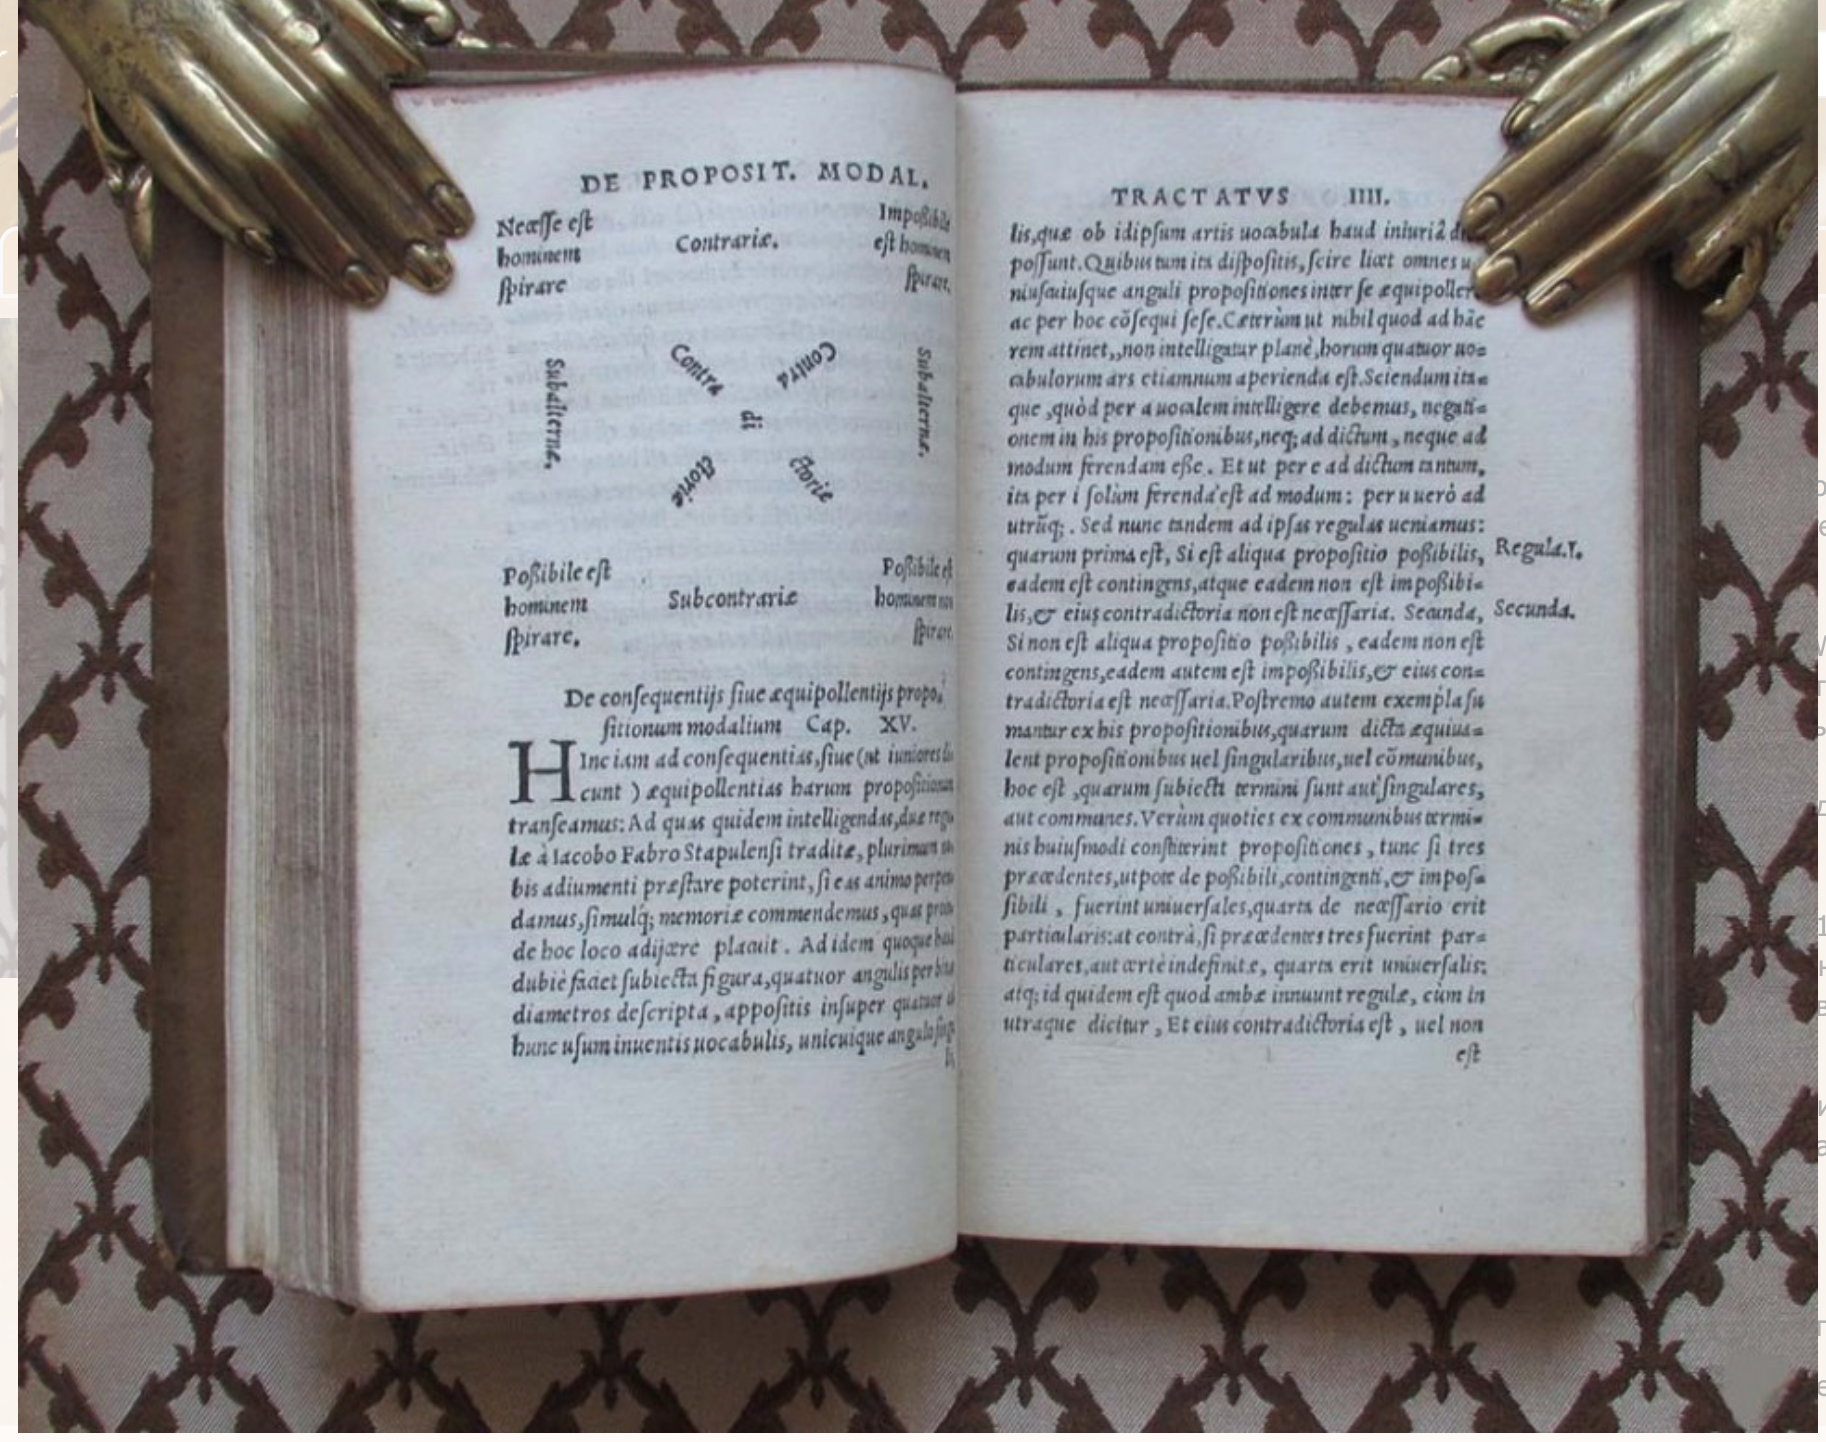 DE PROPOSIT. MODAL.
Necesse est
hominem
spirare
Contrariæ.
Impoßibile
est hominem
spirare.
Subalternæ.
Contra
Contra
di
ctoriæ
ctoriæ
Subalternæ.
Poßibile est
hominem
spirare.
Subcontrariæ
Poßibile est
hominem non
spirare.
De consequentijs siue æquipollentijs propo-
sitionum modalium Cap. XV.
HInc iam ad consequentias, siue (ut iuniores di
cunt) æquipollentias harum propositionum
transeamus: Ad quas quidem intelligendas, duæ regu
læ à Iacobo Fabro Stapulensi traditæ, plurimum
bis adiumenti præstare poterint, si eas animo perpen
damus, simulq; memoriæ commendemus, quas
de hoc loco adijcere placuit. Ad idem quoque haud
dubiè faciet subiecta figura, quatuor angulis per binas
diametros descripta, appositis insuper quatuor
hunc usum inuentis uocabulis, unicuique angulo
TRACTATVS IIII.
lis, quæ ob idipsum artis uocabula haud iniuriâ
possunt. Quibus tum ita dispositis, scire licet omnes
niuscuiusque anguli propositiones inter se æquipollere
ac per hoc cõsequi sese. Cæterùm ut nihil quod ad hãc
rem attinet,,non intelligatur planè, horum quatuor uo=
cabulorum ars etiamnum aperienda est. Sciendum ita=
que, quòd per a uocalem intelligere debemus, negati=
onem in his propositionibus, neq; ad dictum, neque ad
modum ferendam eße. Et ut per e ad dictum tantum,
ita per i solùm ferenda est ad modum: per u uerò ad
utrũq;. Sed nunc tandem ad ipsas regulas ueniamus:
quarum prima est, Si est aliqua propositio poßibilis,
Regula.I.
eadem est contingens, atque eadem non est impoßibi=
lis, & eius contradictoria non est necessaria. Secunda,
Secunda.
Si non est aliqua propositio poßibilis, eadem non est
contingens, eadem autem est impoßibilis, & eius con=
tradictoria est necessaria. Postremo autem exempla su
mantur ex his propositionibus, quarum dicta æquiua=
lent propositionibus uel singularibus, uel cõmunibus,
hoc est, quarum subiecti termini sunt aut singulares,
aut communes. Verùm quoties ex communibus termi=
nis huiusmodi constiterint propositiones, tunc si tres
præcedentes, ut pote de poßibili, contingenti, & impos=
sibili, fuerint uniuersales, quarta de necessario erit
particularis: at contrà, si præcedentes tres fuerint par=
ticulares, aut certè indefinitæ, quarta erit uniuersalis:
atq; id quidem est quod ambæ innuunt regulæ, cùm in
utraque dicitur, Et eius contradictoria est, uel non
est